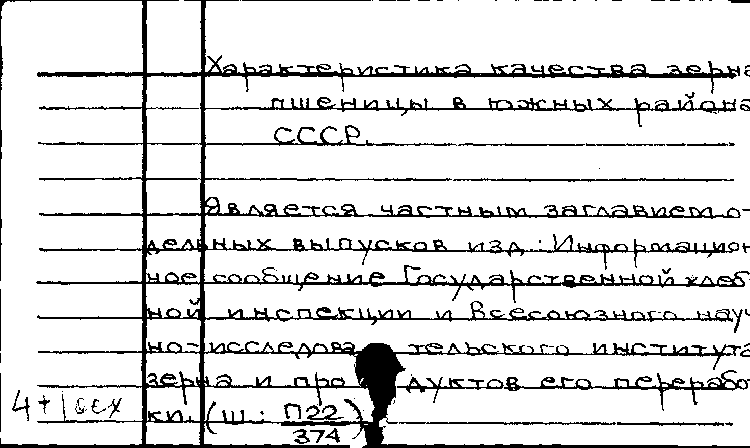 Характеристика качества зерна
пшеницы в южных района
СССР.
Является частным заглавием о-
дельных выпусков изд.: Информацион
ное сообщение Государственной хлеб
ной инспекции и Всесоюзного науч
но-исследова тельского института
зерна и про дуктов его перерабо
ки. (Ш: П22/374)
4+1